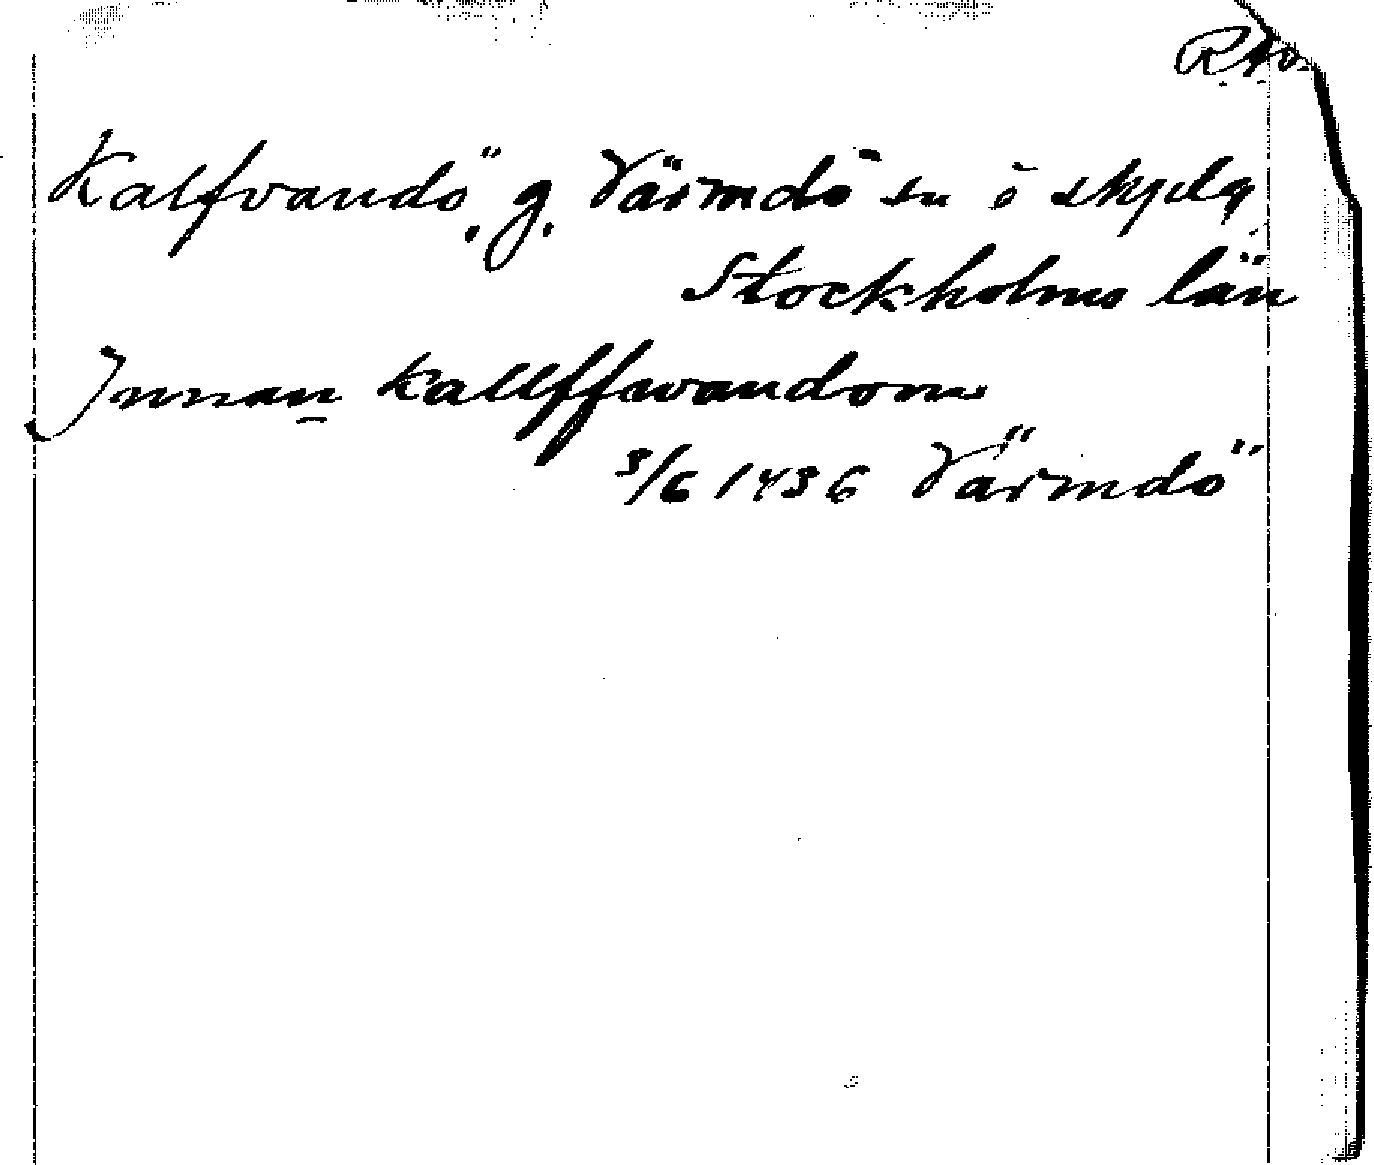 RAO.
Kalfvandö, g. Värmdö sn o skplg,
Stockholms län
Innan kallffwandom
3/6 1436 Värmdö